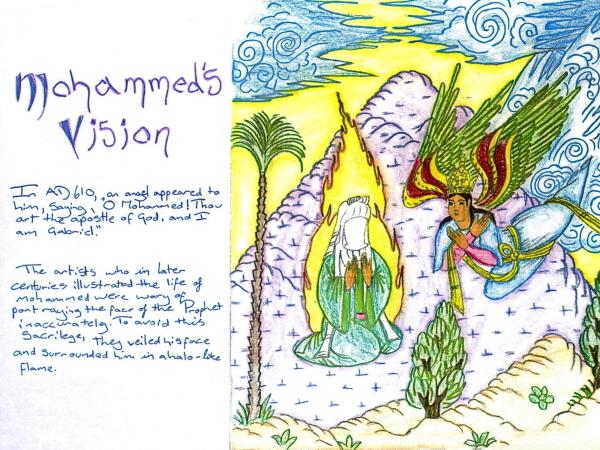 Mohammed's
Vision
In AD 610, an angel appeared to
him, saying, "O Mohammed! Thou
art the apostle of God, and I
am Gabriel."
The artists who in later
centuries illustrated the life of
Mohammed were wary of
portraying the face of the Prophet
inaccurately. To avoid this
Sacrilege, They veiled his face
and surrounded him in a halo-like
flame.